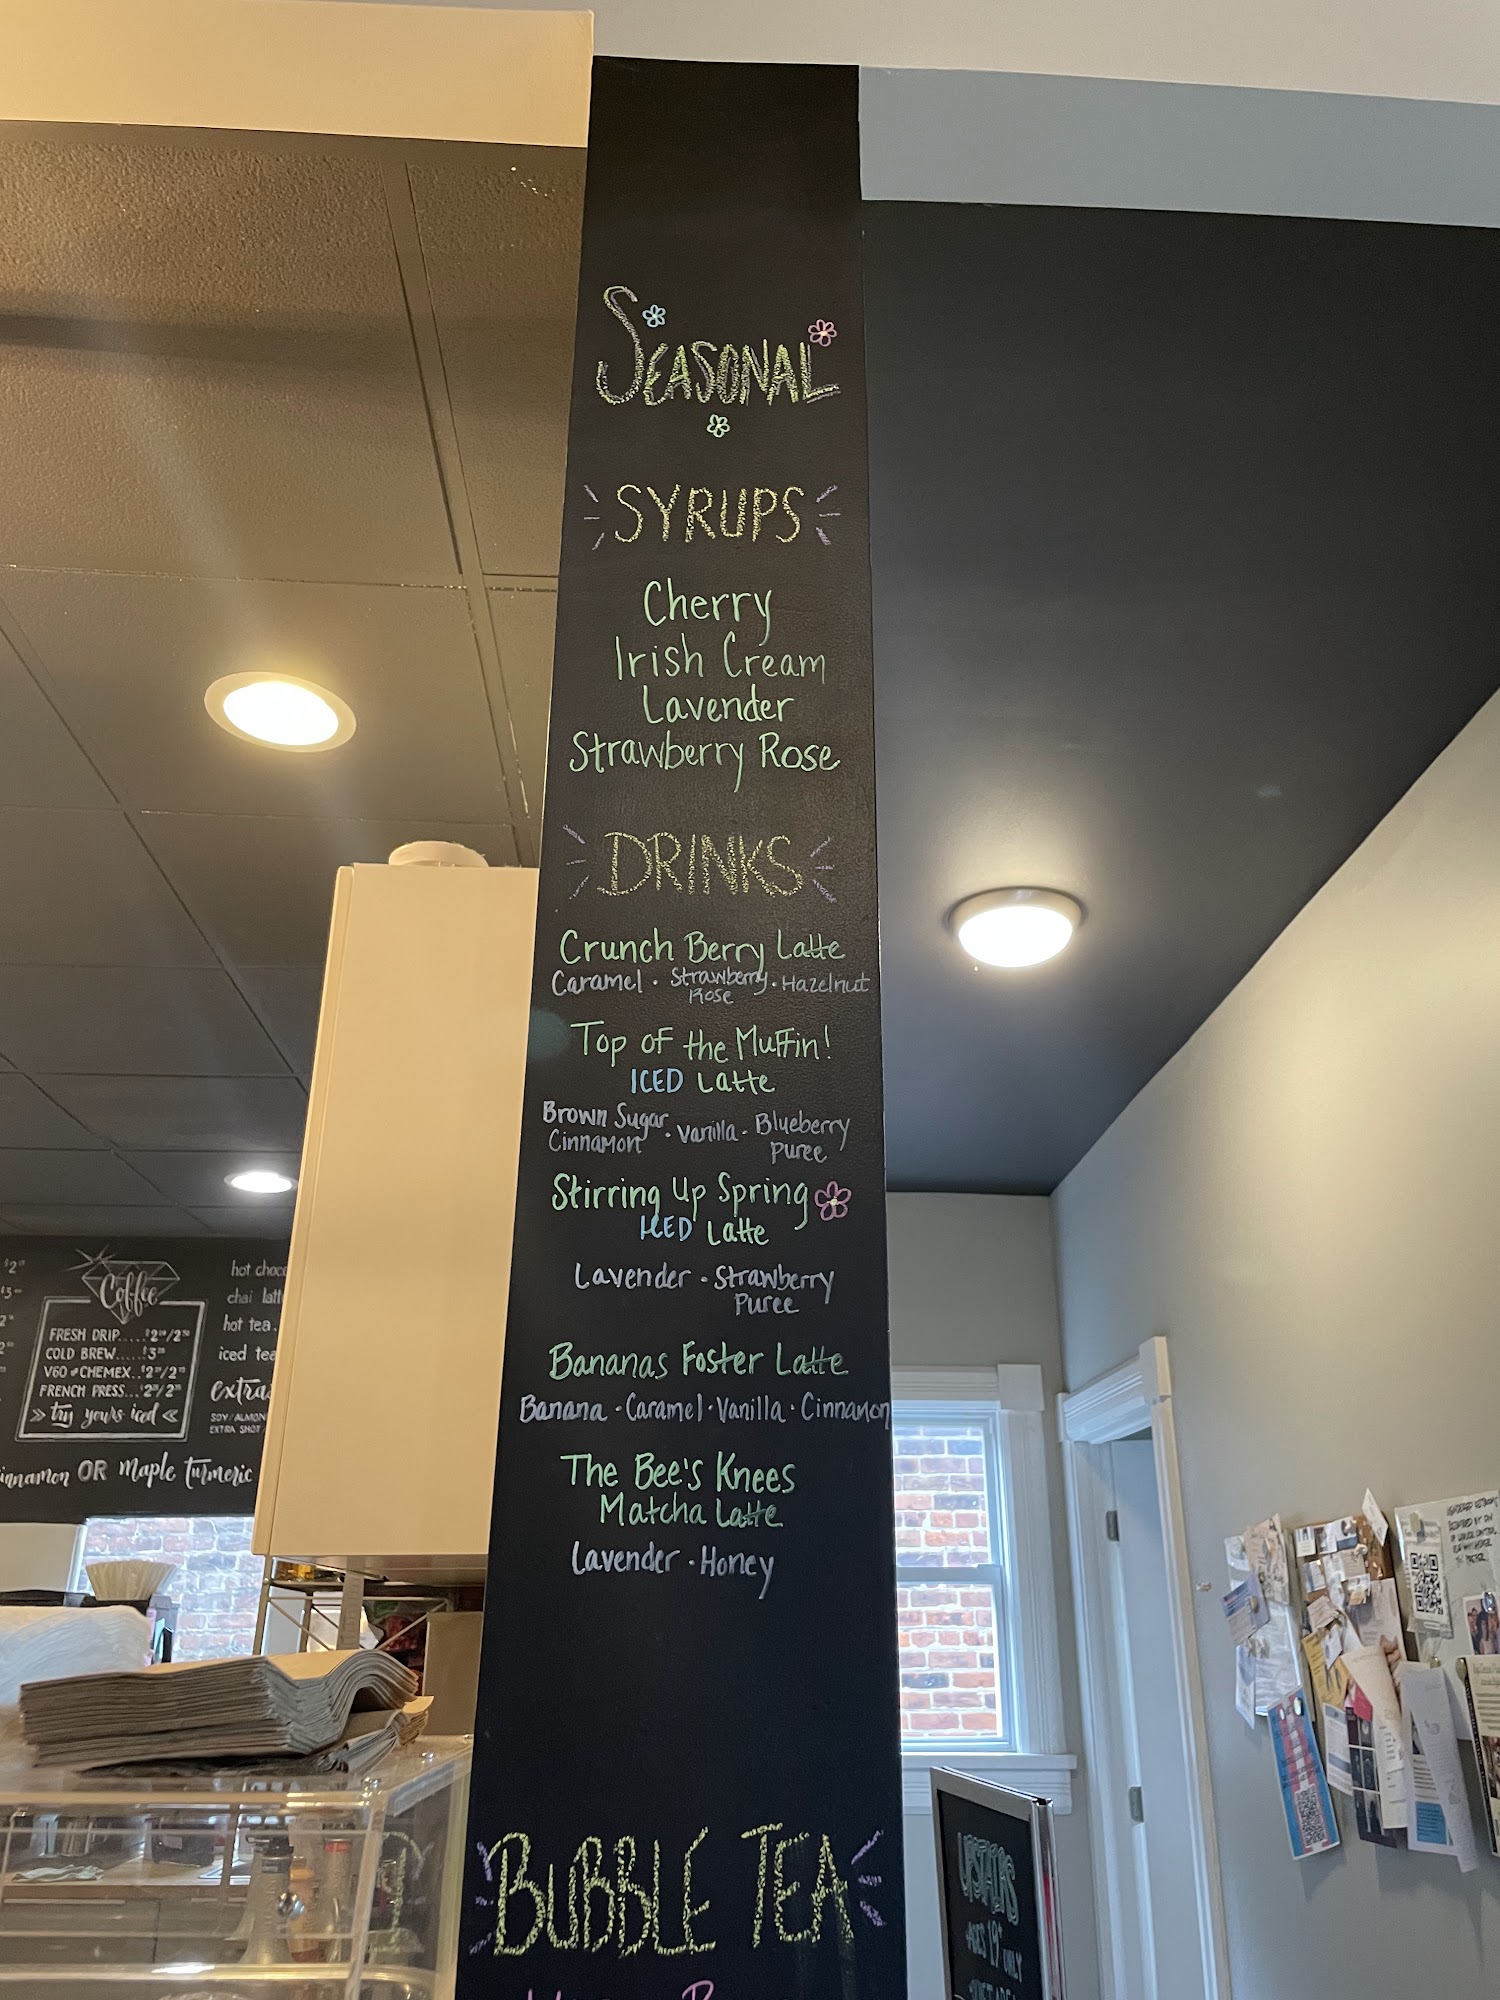 SEASONAL
SYRUPS
Cherry
Irish Cream
Lavender
Strawberry Rose
DRINKS
Crunch Berry Latte
Caramel · Strawberry Rose · Hazelnut
Top of the Muffin!
ICED Latte
Brown Sugar Cinnamon · Vanilla · Blueberry Puree
Stirring Up Spring
ICED Latte
Lavender · Strawberry Puree
Bananas Foster Latte
Banana · Caramel · Vanilla · Cinnamon
The Bee's Knees
Matcha Latte
Lavender · Honey
BUBBLE TEA
Coffee
FRESH DRIP
COLD BREW
V60 CHEMEX
FRENCH PRESS
try yours iced
hot
chai
hot tea
iced tea
SOY/
EXTRA SHOT
OR maple turmeric
UPSTAIRS
ONLY